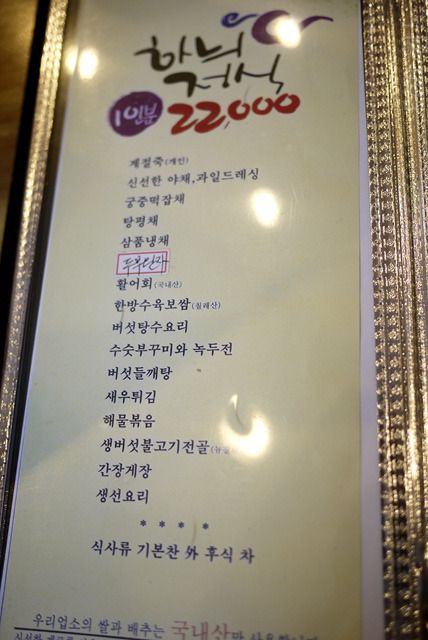 하늬
정식
1인분 22,000
계절죽(개인)
신선한 야채,과일드레싱
궁중떡잡채
탕평채
삼품냉채
두부완자
활어회(국내산)
한방수육보쌈(칠레산)
버섯탕수요리
수숫부꾸미와 녹두전
버섯들깨탕
새우튀김
해물볶음
생버섯불고기전골
간장게장
생선요리
* * * *
식사류 기본찬 外 후식 차
우리업소의 쌀과 배추는 국내산만